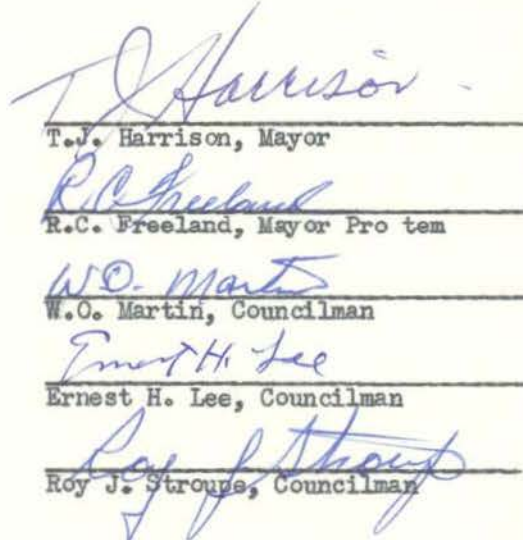 T J Harrison
T.J. Harrison, Mayor
R.C. Freeland
R.C. Freeland, Mayor Pro tem
W.O. Martin
W.O. Martin, Councilman
Ernest H. Lee
Ernest H. Lee, Councilman
Roy J Stroupe
Roy J. Stroupe, Councilman